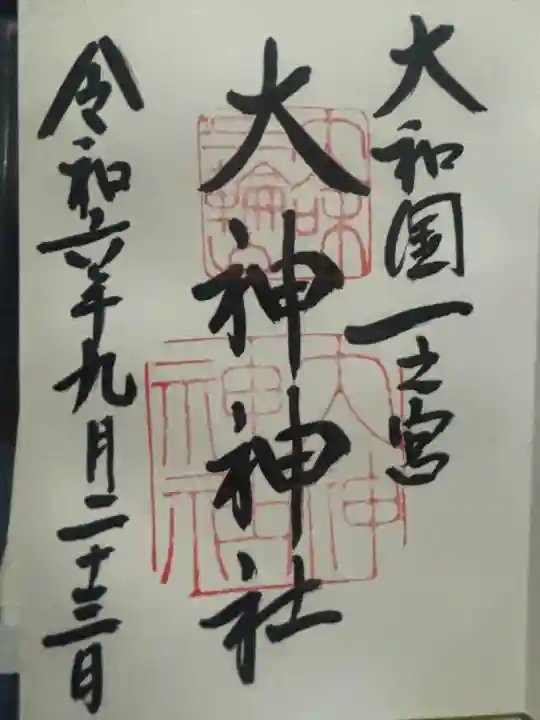 大和国一之宮
大神神社
令和六年九月二十三日
大神
神社